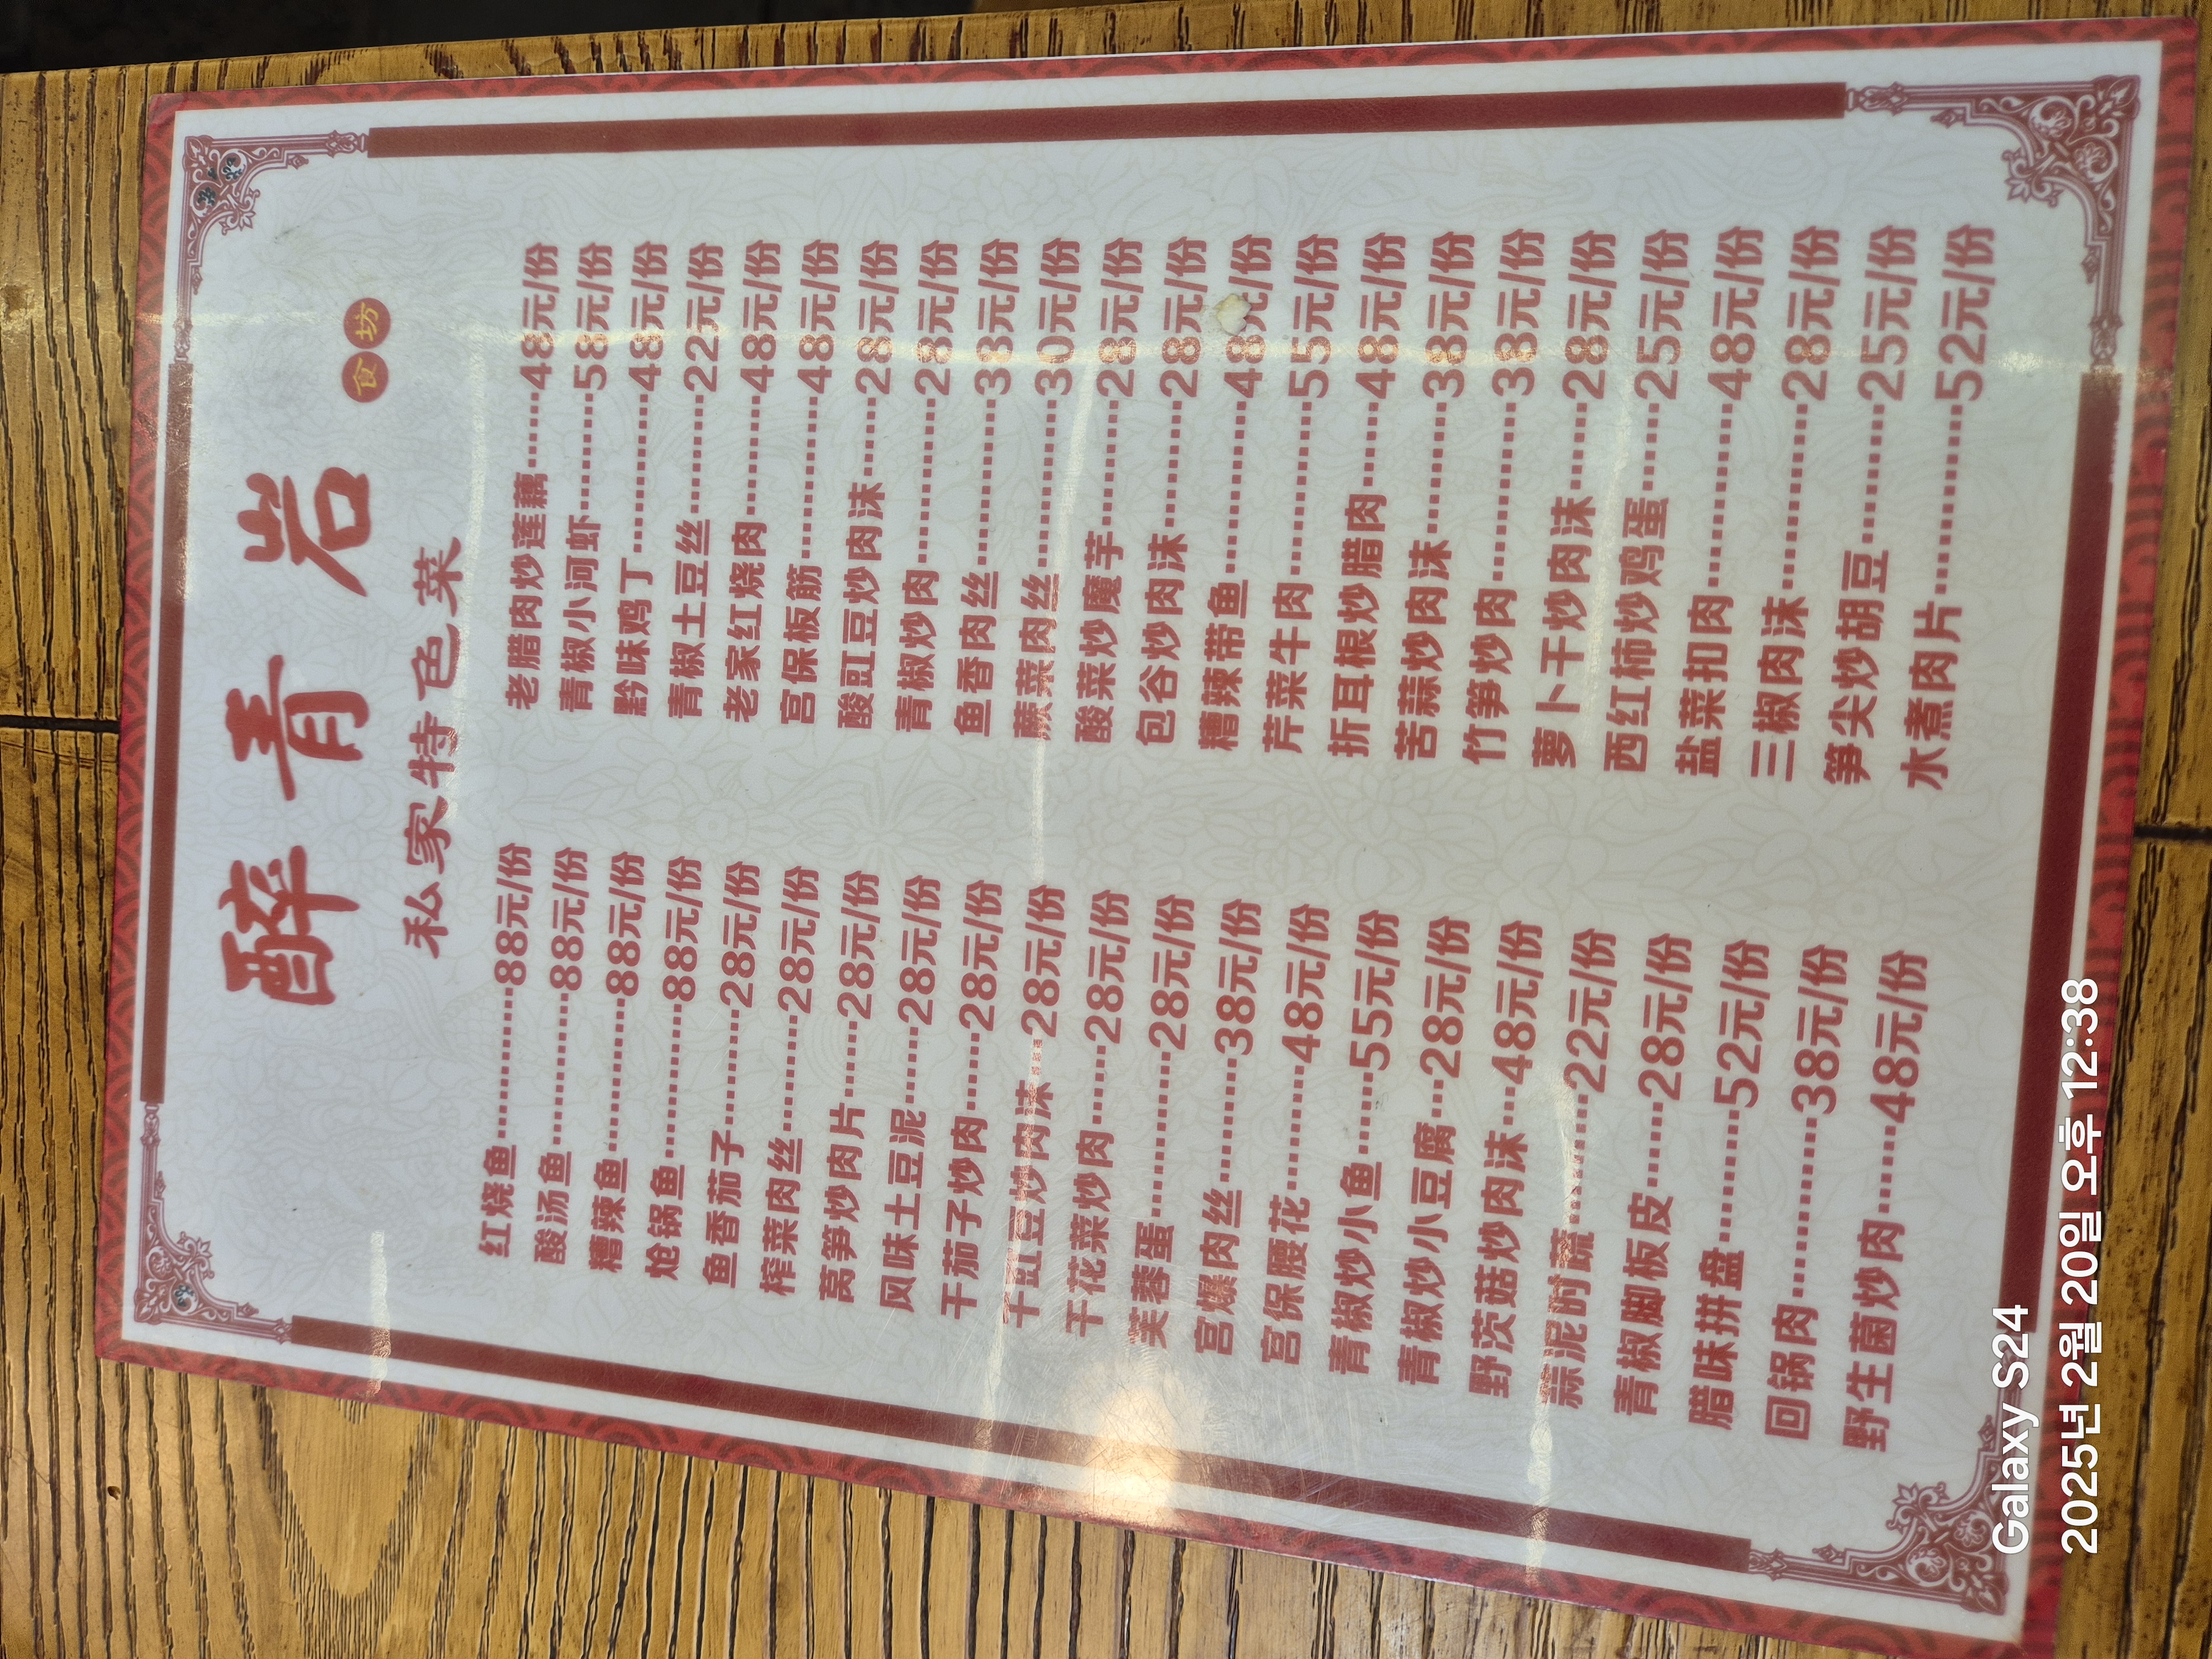 醉青岩
食坊
私家特色菜
红烧鱼--------------88元/份
酸汤鱼--------------88元/份
糟辣鱼--------------88元/份
炝锅鱼--------------88元/份
鱼香茄子-----------28元/份
榨菜肉丝-----------28元/份
莴笋炒肉片--------28元/份
风味土豆泥--------28元/份
干茄子炒肉--------28元/份
干豇豆炒肉沫-----28元/份
干花菜炒肉--------28元/份
芙蓉蛋--------------28元/份
宫爆肉丝-----------38元/份
宫保腰花-----------48元/份
青椒炒小鱼--------55元/份
青椒炒小豆腐-----28元/份
野茨菇炒肉沫-----48元/份
蒜泥时蔬-----------22元/份
青椒脚板皮--------28元/份
腊味拼盘-----------52元/份
回锅肉--------------38元/份
野生菌炒肉--------48元/份
老腊肉炒莲藕--------48元/份
青椒小河虾-----------58元/份
黔味鸡丁--------------48元/份
青椒土豆丝-----------22元/份
老家红烧肉-----------48元/份
宫保板筋--------------48元/份
酸豇豆炒肉沫--------28元/份
青椒炒肉--------------28元/份
鱼香肉丝--------------38元/份
蕨菜肉丝--------------30元/份
酸菜炒魔芋-----------28元/份
包谷炒肉沫-----------28元/份
糟辣带鱼--------------48元/份
芹菜牛肉--------------55元/份
折耳根炒腊肉--------48元/份
苦蒜炒肉沫-----------38元/份
竹笋炒肉--------------38元/份
萝卜干炒肉沫--------28元/份
西红柿炒鸡蛋--------25元/份
盐菜扣肉--------------48元/份
三椒肉沫--------------28元/份
笋尖炒胡豆-----------25元/份
水煮肉片--------------52元/份
Galaxy S24
2025년 2월 20일 오후 12:38